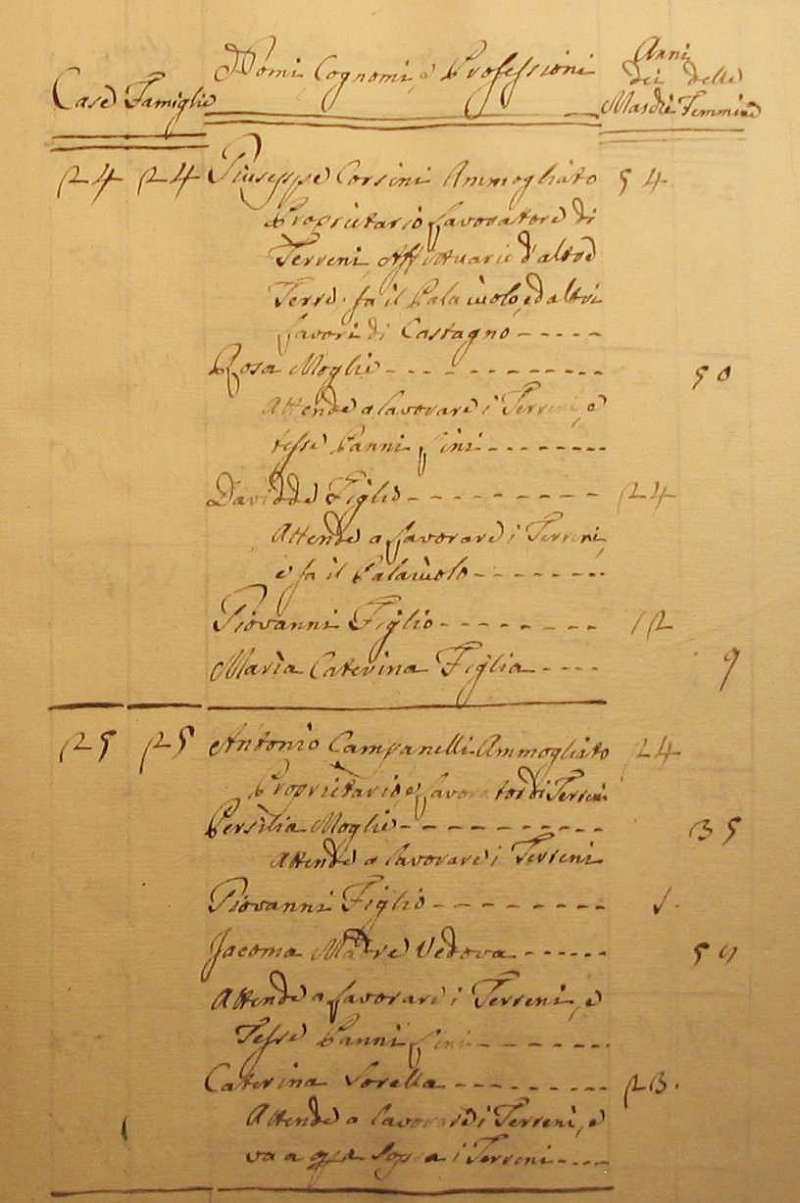 Case Famiglie Nomi, Cognomi, e Professioni Anni
dei delle
Maschi Femmine
24 24 Giuseppe Corsini Ammogliato 54
Proprietario Lavoratore di
Terreni, Affittuario d'altre
Terre. fa il Palaiuolo, ed altri
Lavori di Castagno
Rosa Moglie 50
Attende a lavorare i Terreni, e
tesse Panni Lini
Davidde Figlio 24
Attende a Lavorare i Terreni,
e fa il Palaiuolo
Giovanni Figlio 12
Maria Caterina Figlia 9
25 25 Antonio Campanelli Ammogliato 24
Proprietario, e Lavorator di Terreni
Persilia Moglie 35
Attende a lavorare i Terreni
Giovanni Figlio
Jacoma Madre Vedova
Attende a Lavorare i Terreni, e
Tesse Panni Lini
Caterina Sorella 23.
Attende a lavorare i Terreni, e
va a i Terreni